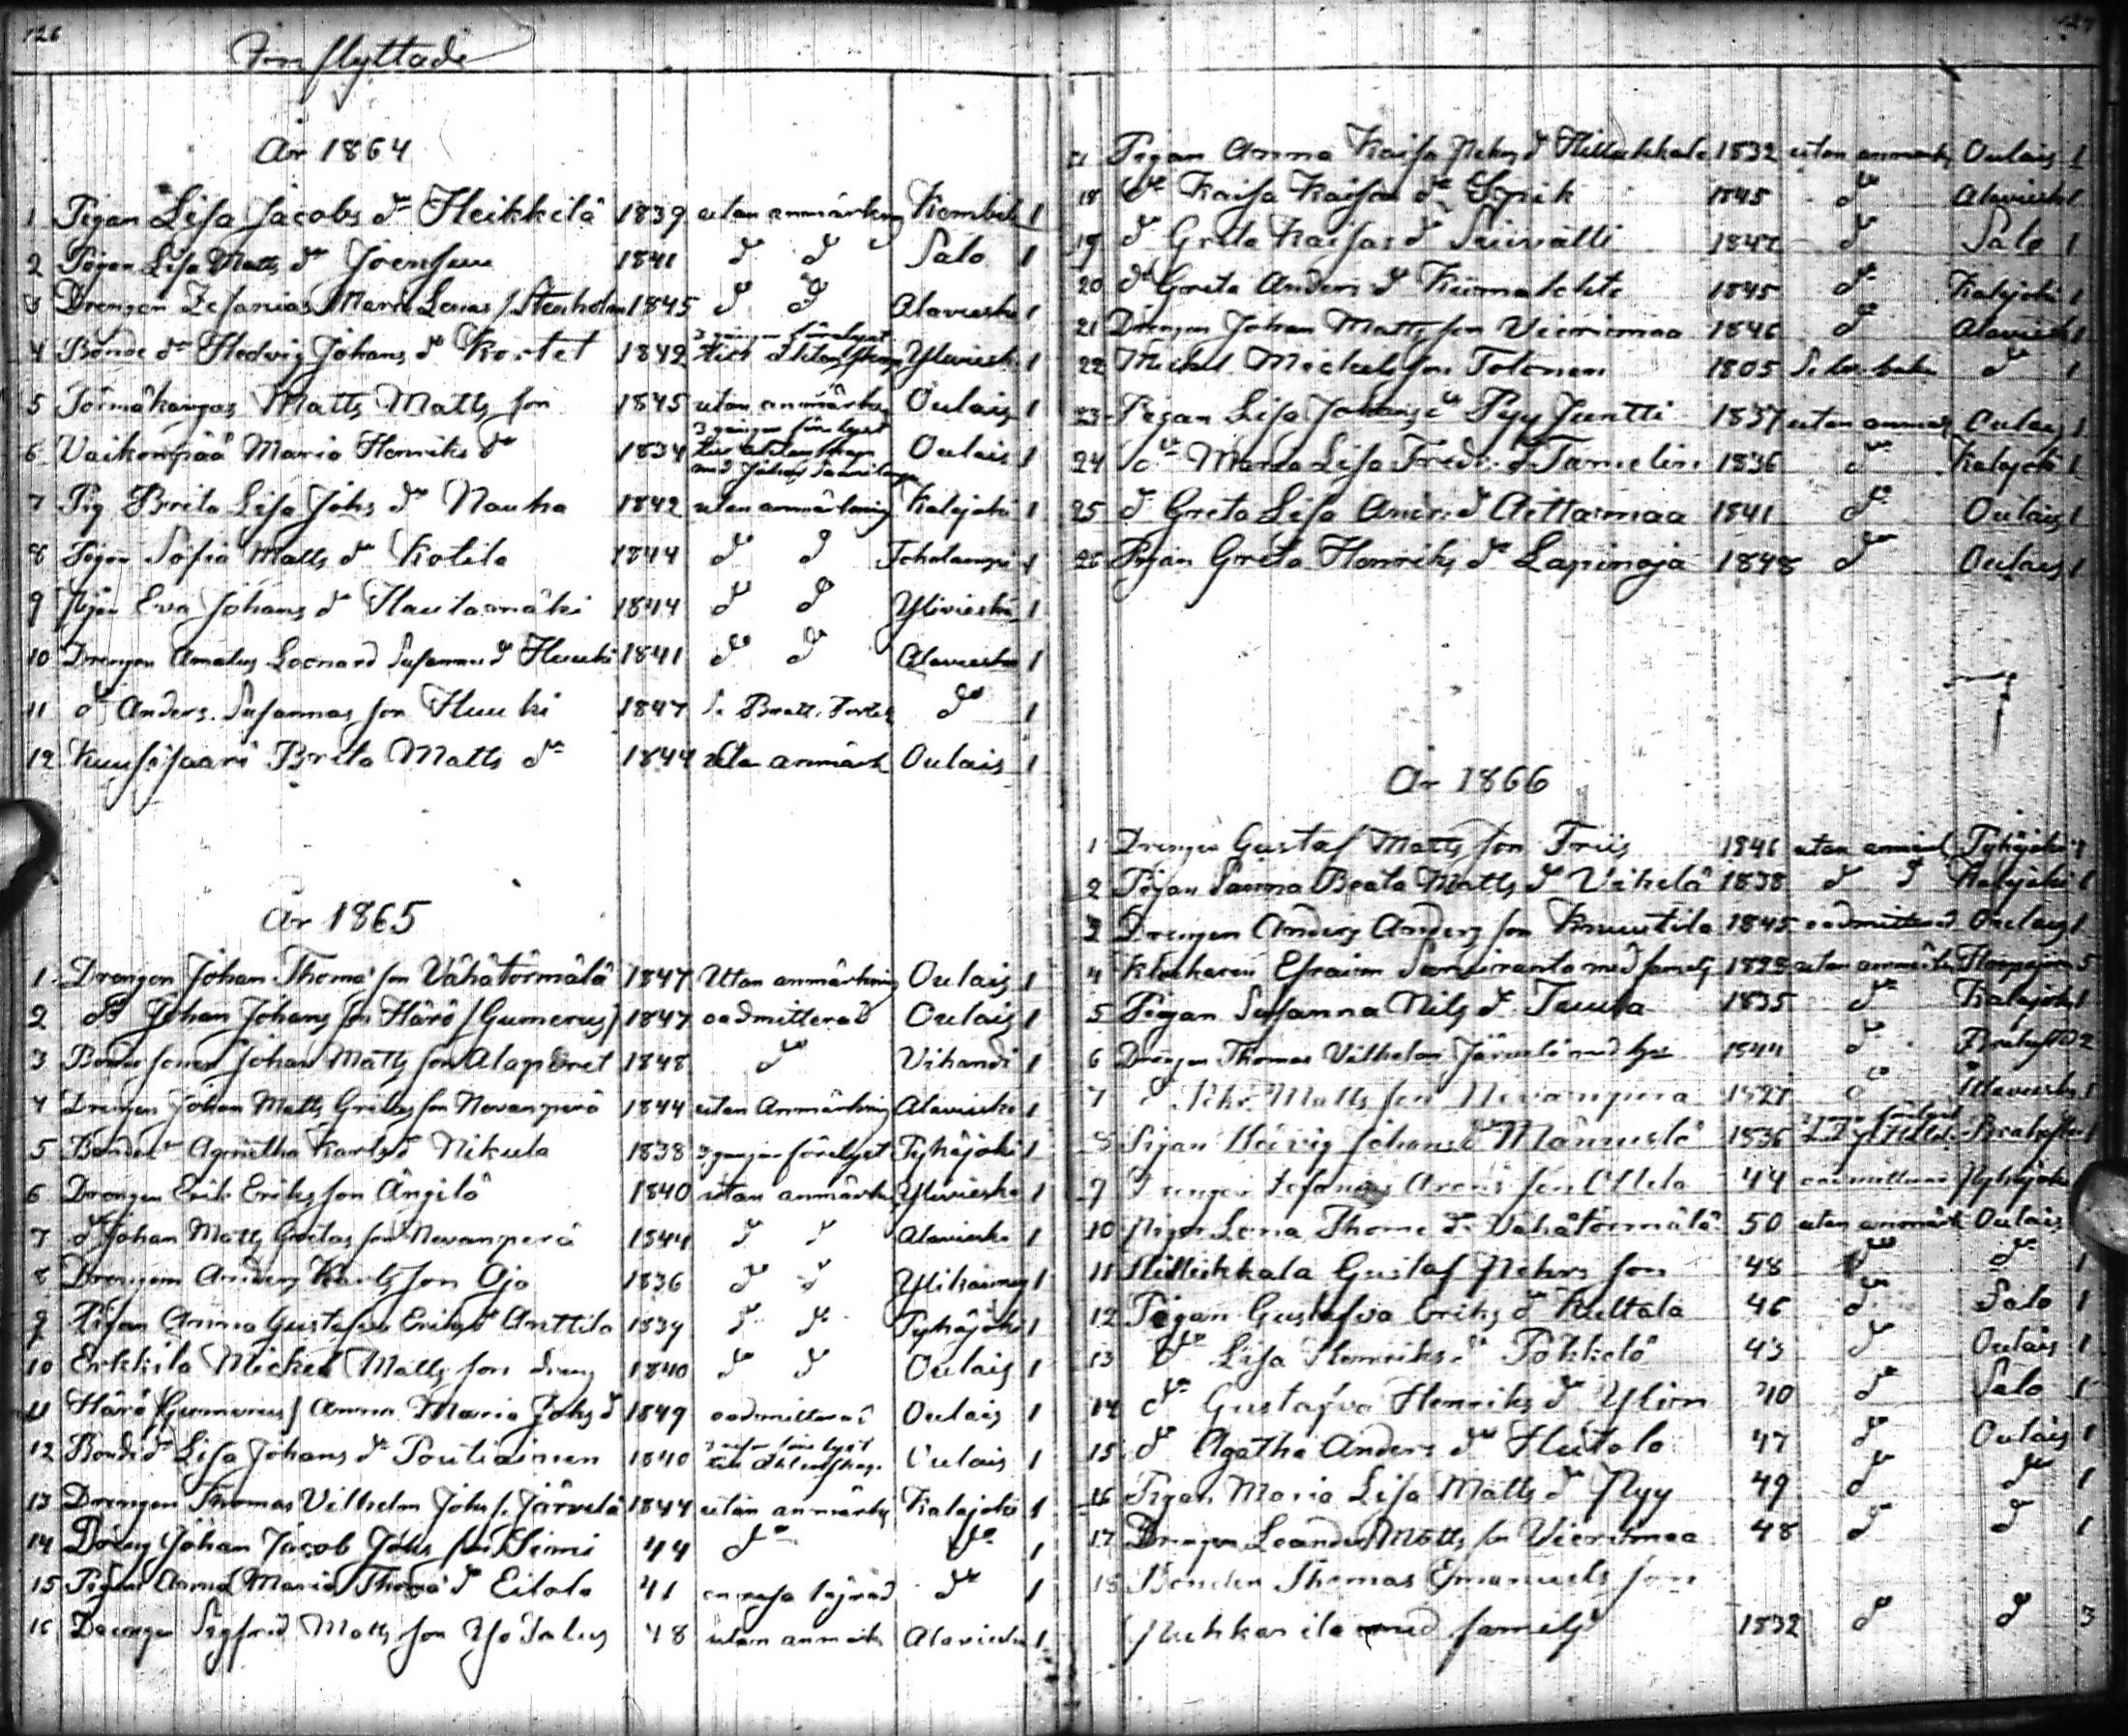 126
Inflyttade
År 1864
1 Pigan Lisa Jacobs dr Heikkilä 1839 utan anmärkning Kembele 1
2 Pigan Lisa Matts dr Joensuu 1841 do do Salo 1
3 Drengen Zefanias Maria Lenas s. Stenholm 1845 do do Alavieska 1
4 Bonde dr Hedvig Johans dr Kostet 1842 3 gånger förelyst till äktenskap Ylivieska 1
5 Törmäkangas Matts Matts son 1845 utan anmärkn Oulais 1
6 Vaikonpää Maria Henriks dr 1834 3 gånger förelyst till äktenskap med Johan Oulais 1
7 Pig Brita Lisa Johs dr Nauha 1842 utan anmärkning Kalajoki 1
8 Pigan Sofia Matts dr Kotila 1844 do do Toholampi 1
9 Pigan Eva Johans dr Hautamäki 1844 do do Ylivieska 1
10 Drengen Amalus Leonard Susanna d Huuki 1841 do do Alavieska 1
11 do Anders Susannas son Huuki 1847 do 1
12 Kuusisaari Brita Matts dr 1844 utan anmärk Oulais 1
År 1865
1 Drengen Johan Thoma son Vähätörmälä 1847 Utan anmärkning Oulais 1
2 do Johan Johans son Härö (Gumerus) 1847 oadmitterad Oulais 1
3 Bonde sonen Johan Matts son Alaperet 1848 do Vihandi 1
4 Drengen Johan Matts Gretas son Nevanperä 1844 utan Anmärkning Alavieska 1
5 Bonde dr Agnetha Karls dr Nikula 1838 3 gånger förelyst Pyhäjoki 1
6 Drengen Erik Eriks son Ängilä 1840 utan anmärkn Ylivieska 1
7 do Johan Matts Gretas son Nevanperä 1844 do do Alavieska 1
8 Drengen Anders Karls son Oja 1836 do do Ylikannus 1
9 Pigan Anna Gustafva Eriks dr Anttila 1839 do do Pyhäjoki 1
10 Erkkilä Mickel Matts son dreng 1840 do do Oulais 1
11 Härö (Gumerus) Anna Maria Johs d 1849 oadmitterad Oulais 1
12 Bonde dr Lisa Johans dr Poutiainen 1840 3 förelyst till äktenskap Oulais 1
13 Drengen Thomas Vilhelm Johs s. Järvelä 1844 utan anmärkn Kalajoki 1
14 Dreng Johan Jacob Johs son Siimi 44 do do 1
15 Pigan Anna Maria Thoma dr Eilola 41 do 1
16 Drengen Sigfrid Matts son 48 utan anmärk Alavieska 1
127
Pigan Anna Kaisa Pehrs d Hillukkala 1832 utan anmärk Oulais 1
18 do Kaisa Kaisas dr 1845 do Alavieska 1
19 do Greta Kaisas dr 1847 do Salo 1
20 do Greta Anders dr Kiimalehto 1845 do Kalajoki 1
21 Drengen Johan Matts son Vierimaa 1846 do Alavieska 1
22 Mickel Mickels son Tolonen 1805 do 1
23 Pigan Lisa Johans dr Pyy Juntti 1837 utan anmärk Oulais 1
24 do Maria Lisa Fredr. d Tamelin 1836 do Kalajoki 1
25 do Greta Lisa Andr. d Aittamaa 1841 do Oulais 1
26 Pigan Greta Henriks dr Lapinoja 1848 do Oulais 1
År 1866
1 Drengen Gustaf Matts son Friis 1846 utan anmärk Pyhäjoki 1
2 Pigan Sanna Beata Matts dr Vikelä 1838 do do Kalajoki 1
3 Drengen Anders Anders son Knuutila 1845 oadmitterad Oulais 1
4 Klockaren Efraim med familj utan anmärkn 5
5 Pigan Susanna Nils dr Tuura 1835 do Kalajoki 1
6 Drengen Thomas Vilhelm Järvelä med 1844 do Brahestad 2
7 do Pehr Matts son Nevanperä 1827 do Alavieska 1
8 Pigan Hedvig Johans dr 1836 Brahestad 1
9 Drengen Zefanias Arons son Ollila 44 oadmitterad Pyhäjoki
10 Pigan Lena Thoma dr Vähätörmälä 50 utan anmärk Oulais
11 Hillukkala Gustaf Pehrs son 48 do do 1
12 Pigan Gustafva Eriks dr Kultala 46 do Salo 1
13 do Lisa Henriks dr Pökkelä 43 do Oulais 1
14 do Gustafva Henriks dr Ylien 40 do Salo 1
15 do Agatha Anders dr Huitala 47 do Oulais 1
16 Pigan Maria Lisa Matts dr Pyy 49 do do 1
17 Drengen Leander Matts son Vierimaa 48 do do 1
18 Bonden Thomas Emanuels son
Puhkarila med familj 1832 do do 3